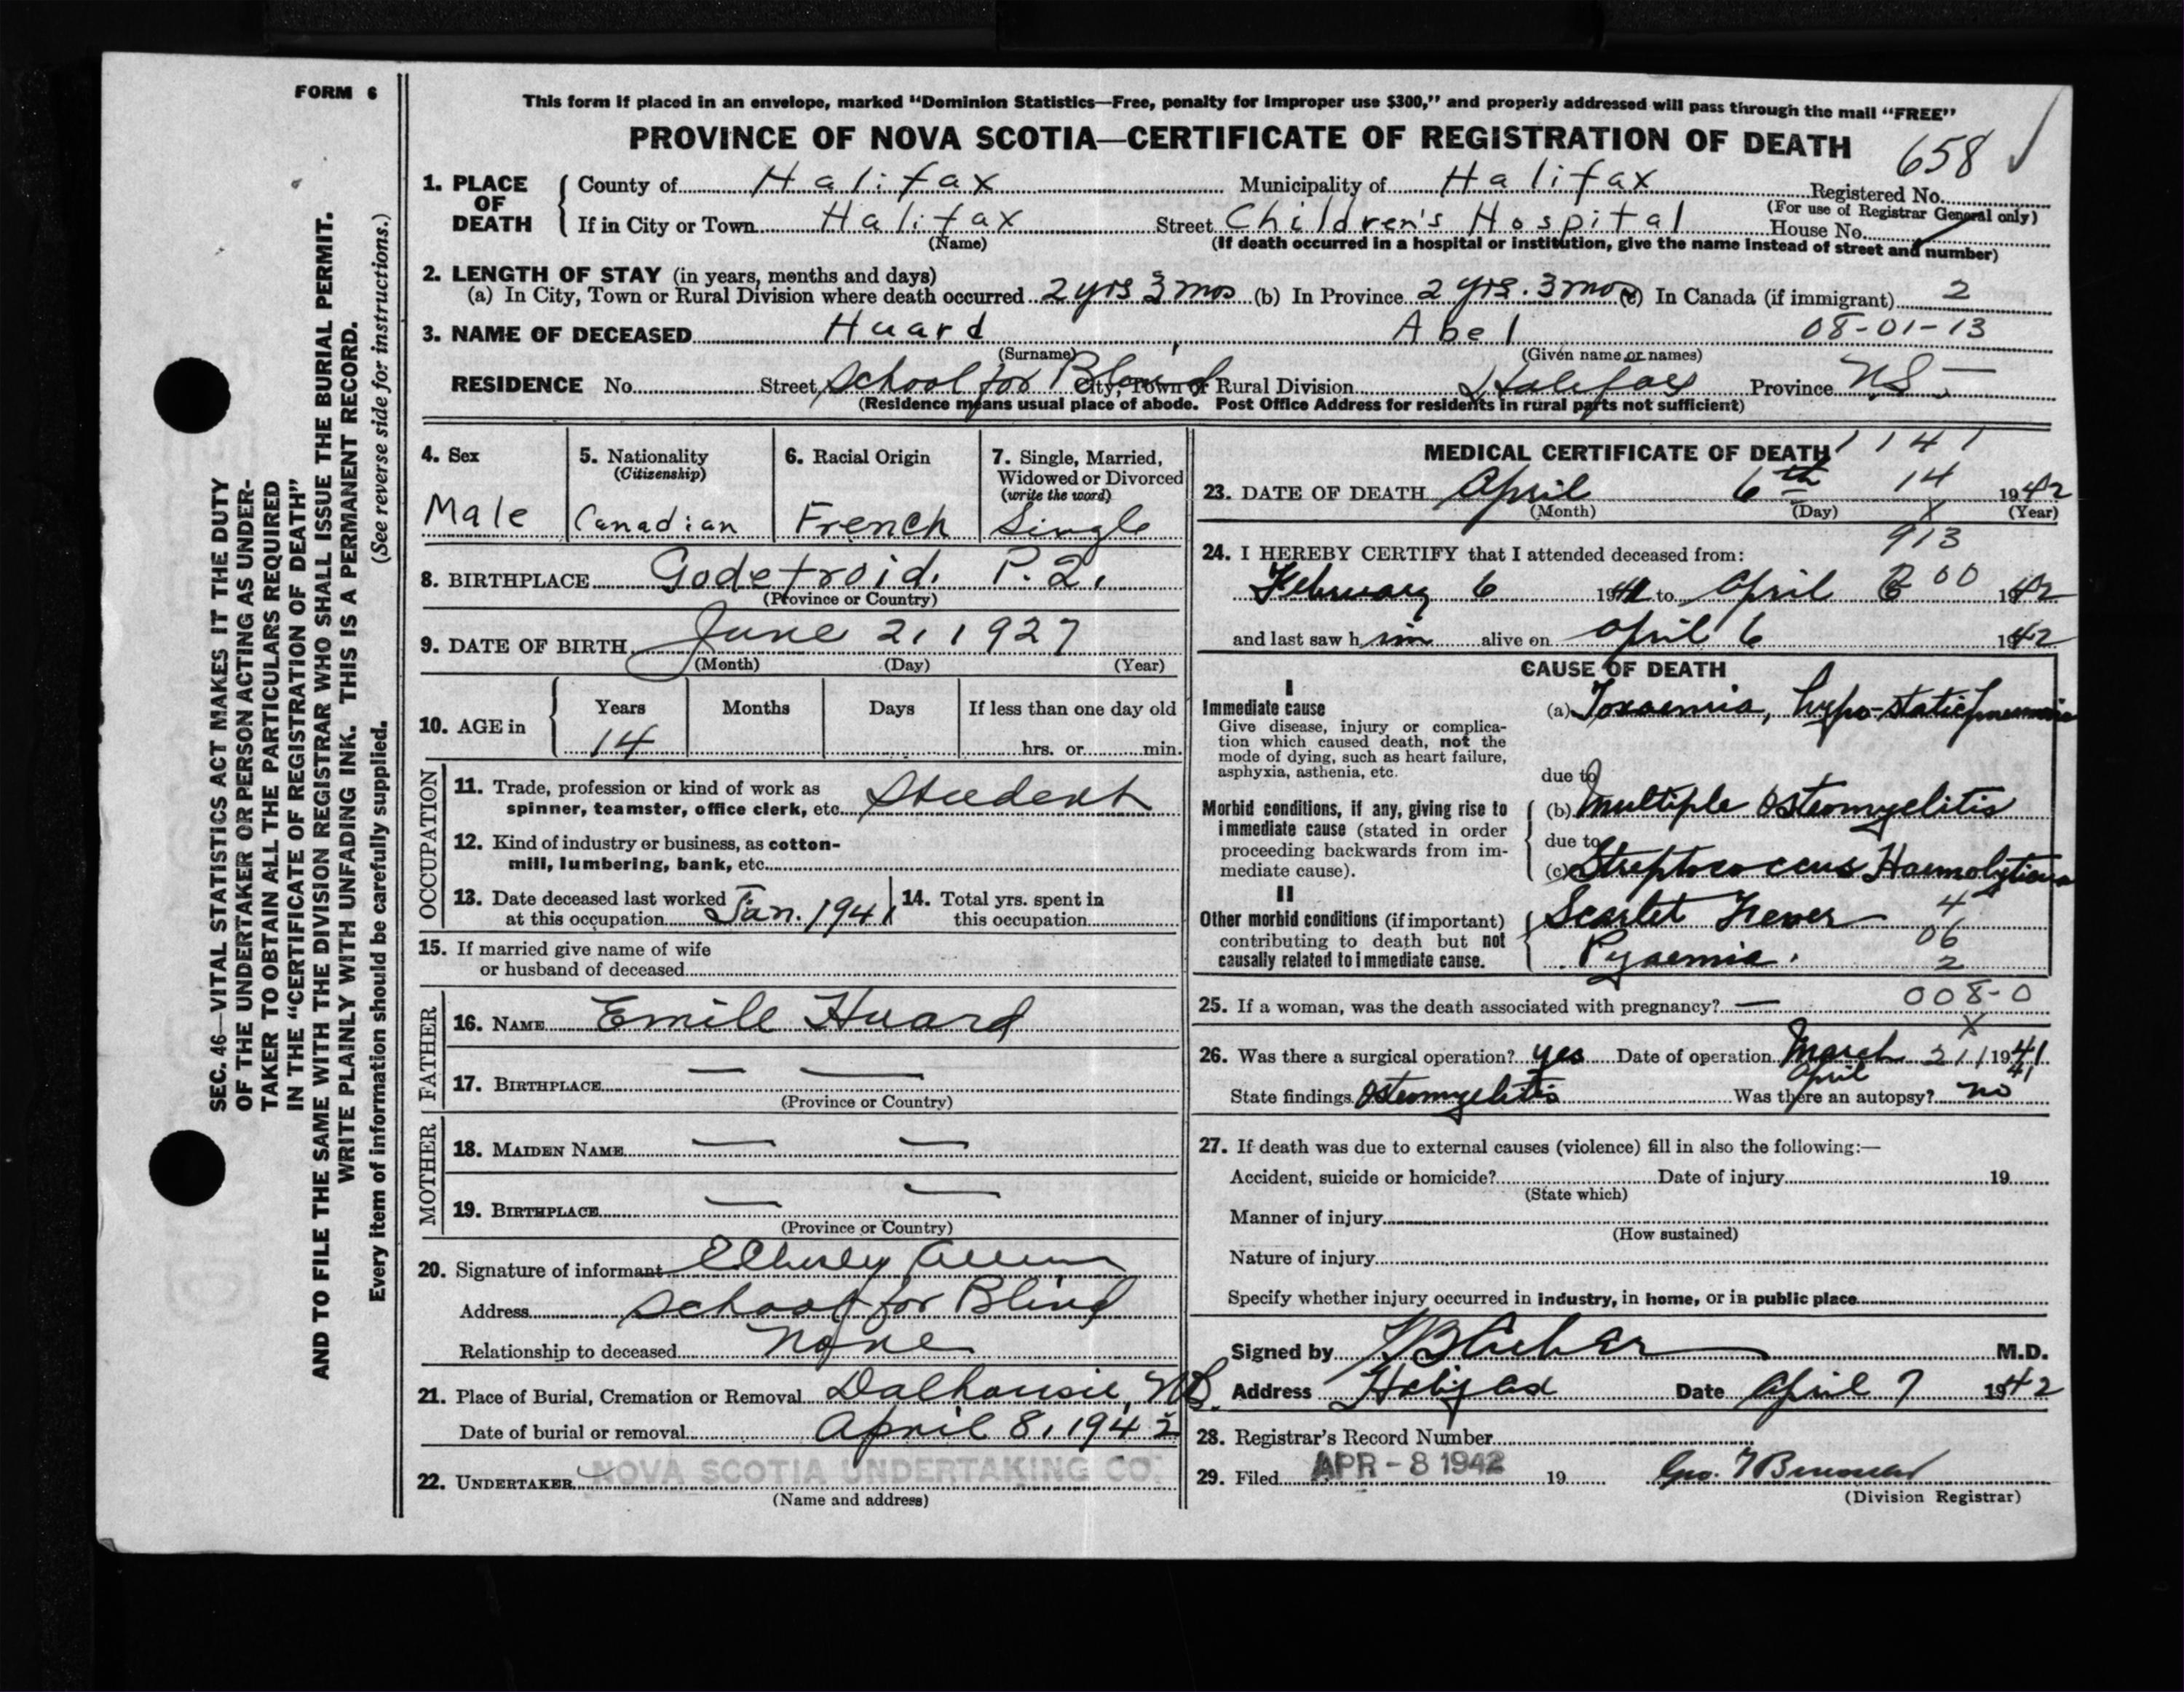 FORM 6
This form if placed in an envelope, marked "Dominion Statistics—Free, penalty for improper use $300," and properly addressed will pass through the mail "FREE"
PROVINCE OF NOVA SCOTIA—CERTIFICATE OF REGISTRATION OF DEATH
658
1. PLACE OF DEATH
County of Halifax Municipality of Halifax Registered No.
(For use of Registrar General only)
If in City or Town Halifax Street Children's Hospital House No.
(Name) (If death occurred in a hospital or institution, give the name instead of street and number)
2. LENGTH OF STAY (in years, months and days)
(a) In City, Town or Rural Division where death occurred 2 yrs 3 mos (b) In Province 2 yrs. 3 mos (c) In Canada (if immigrant) 2
3. NAME OF DECEASED Huard, Abel 08-01-13
(Surname) (Given name or names)
RESIDENCE No. Street School for Blind City, Town or Rural Division Halifax Province NS
(Residence means usual place of abode. Post Office Address for residents in rural parts not sufficient)
SEC. 46—VITAL STATISTICS ACT MAKES IT THE DUTY
OF THE UNDERTAKER OR PERSON ACTING AS UNDER-
TAKER TO OBTAIN ALL THE PARTICULARS REQUIRED
IN THE "CERTIFICATE OF REGISTRATION OF DEATH"
AND TO FILE THE SAME WITH THE DIVISION REGISTRAR WHO SHALL ISSUE THE BURIAL PERMIT.
WRITE PLAINLY WITH UNFADING INK. THIS IS A PERMANENT RECORD.
Every item of information should be carefully supplied. (See reverse side for instructions.)
4. Sex Male
5. Nationality (Citizenship) Canadian
6. Racial Origin French
7. Single, Married, Widowed or Divorced (write the word) Single
8. BIRTHPLACE Godefroid. P.Q.
(Province or Country)
9. DATE OF BIRTH June 21 1927
(Month) (Day) (Year)
10. AGE in Years Months Days If less than one day old
14 hrs. or min.
OCCUPATION
11. Trade, profession or kind of work as
spinner, teamster, office clerk, etc. Student
12. Kind of industry or business, as cotton-
mill, lumbering, bank, etc.
13. Date deceased last worked
at this occupation Jan. 1941
14. Total yrs. spent in
this occupation
15. If married give name of wife
or husband of deceased
FATHER
16. NAME Emile Huard
17. BIRTHPLACE — —
(Province or Country)
MOTHER
18. MAIDEN NAME — —
19. BIRTHPLACE — —
(Province or Country)
20. Signature of informant
Address School for Blind
Relationship to deceased None
21. Place of Burial, Cremation or Removal Dalhousie, NB.
Date of burial or removal April 8, 1942
22. UNDERTAKER NOVA SCOTIA UNDERTAKING CO.
(Name and address)
MEDICAL CERTIFICATE OF DEATH 1141
23. DATE OF DEATH April 6th 14 1942
(Month) (Day) X (Year)
913
24. I HEREBY CERTIFY that I attended deceased from:
February 6 1941 to April 6 00 1942
and last saw him alive on April 6 1942
CAUSE OF DEATH
I
Immediate cause
Give disease, injury or complica-
tion which caused death, not the
mode of dying, such as heart failure,
asphyxia, asthenia, etc.
(a) Toxaemia, hypo-static pneumonia
due to
Morbid conditions, if any, giving rise to
immediate cause (stated in order
proceeding backwards from im-
mediate cause).
(b) Multiple Osteomyelitis
due to
(c) Streptococcus Haemolyticus
II
Other morbid conditions (if important)
contributing to death but not
causally related to immediate cause.
Scarlet Fever 4
06
Pyaemia. 2
25. If a woman, was the death associated with pregnancy? — 008-0
X
26. Was there a surgical operation? yes Date of operation March 21 1941
April 41
State findings Osteomyelitis Was there an autopsy? no
27. If death was due to external causes (violence) fill in also the following:—
Accident, suicide or homicide? Date of injury 19
(State which)
Manner of injury
(How sustained)
Nature of injury
Specify whether injury occurred in industry, in home, or in public place
Signed by M.D.
Address Halifax Date April 7 1942
28. Registrar's Record Number
29. Filed APR - 8 1942 19
(Division Registrar)